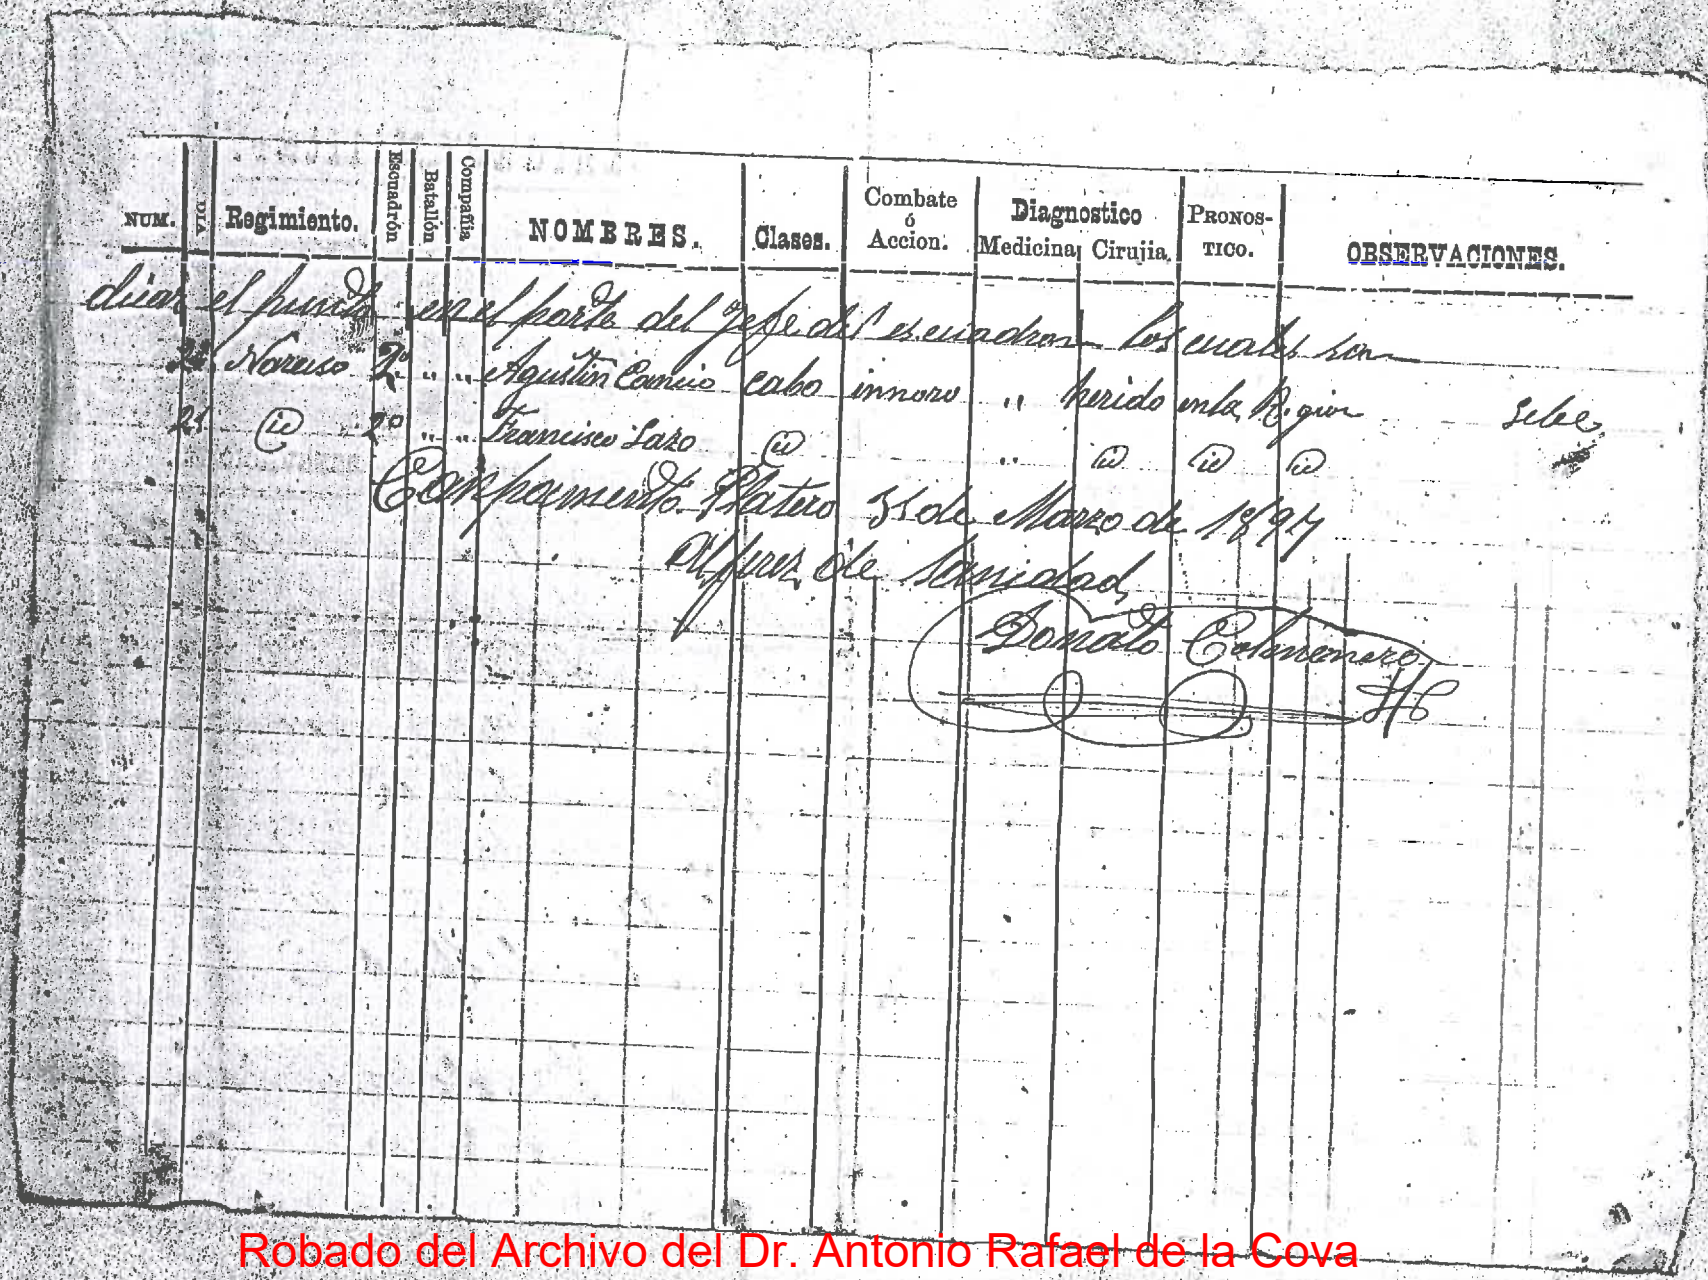 NUM. DIA Regimiento. Escuadrón Batallón Compañia NOMBRES. Clases. Combate ó Accion. Diagnostico Medicina Cirujia. PRONOSTICO. OBSERVACIONES.
dicar el punto en el parte del Jefe del escuadron los cuales son
Narciso 2º " " Agustin Cancio cabo innoro " herido en la Region
21 id 2º " " Francisco Lazo id " id id id
Campamento Platero 31 de Marzo de 1897
Alferez de Sanidad
Donato Colmenero
Robado del Archivo del Dr. Antonio Rafael de la Cova